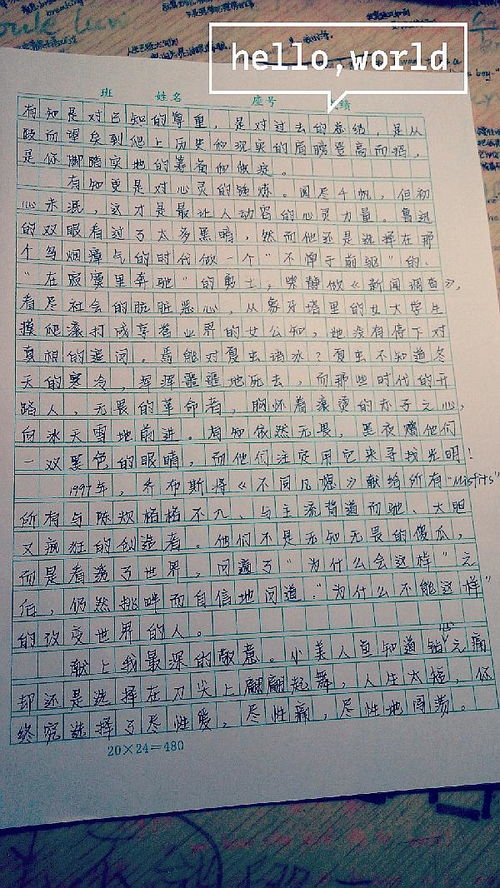 hello,world
班 姓名 座号 成绩
有知是对已知的尊重,是对过去的总结,是从
跂而望矣到爬上历史和现实的肩膀登高而招,
是你脚踏实地的
有知更是对心灵的锤炼。阅尽千帆,但初
心未泯,这才是最让人动容的心灵力量。鲁迅
的双眼看过了太多黑暗,然而他还是选择在那
个乌烟瘴气的时代做一个“不惮于前驱”的、
“在寂寞里奔驰”的勇士,柴静做《新闻调查》,
看尽社会的肮脏恶心,从象牙塔里的女大学生
摸爬滚打成享誉业界的女公知,她没有停下对
真相的追问。焉能对夏虫语冰?夏虫不知道冬
天的寒冷,浑浑噩噩地死去,而那些时代的开
路人,无畏的革命者,胸怀着滚烫的赤子之心,
向冰天雪地前进。有知依然无畏,黑夜赐他们
一双黑色的眼睛,而他们注定用它来寻找光明!
1997年,乔布斯将《不同凡想》献给所有“Misfits”
所有与陈规格格不入、与主流背道而驰、大胆
又疯狂的创造者。他们不是无知无畏的傻瓜,
而是看透了世界,问遍了“为什么会这样”之
后,仍然挑衅而自信地问道:“为什么不能这样”
的改变世界的人。
献上我最深的敬意。小美人鱼知道钻心之痛
却还是选择在刀尖上翩翩起舞,人生太短,你
终究选择了尽性爱,尽性痛,尽性地闯荡。
20×24=480